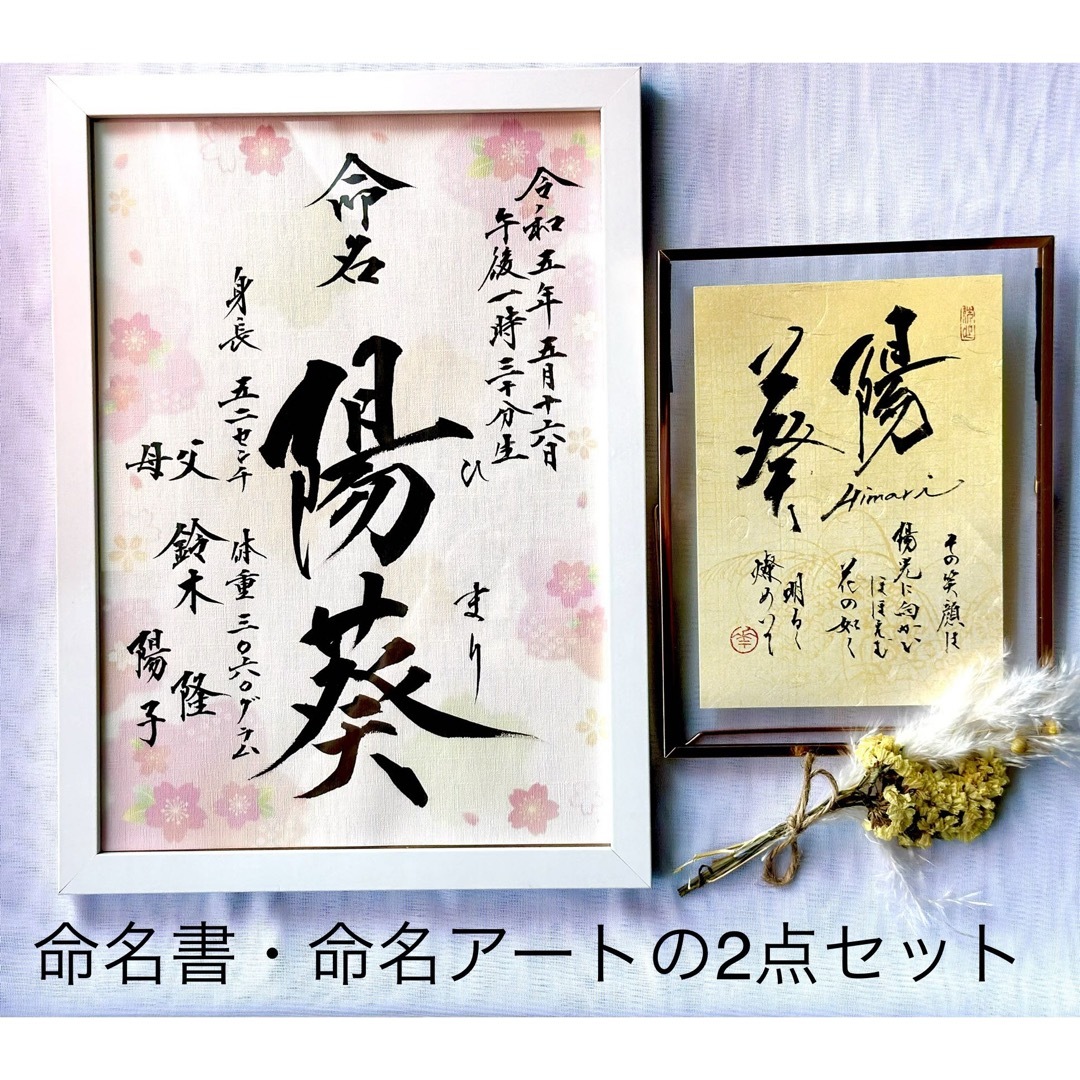 令和五年五月十六日
午後一時三十分生
命名
陽葵
ひまり
身長 五二センチ 体重 三〇六〇グラム
父 鈴木 隆
母 陽子
陽葵
Himari
その笑顔は
陽光に向かい
ほほえむ
花の如く
明るく
燦めいて
命名書・命名アートの2点セット